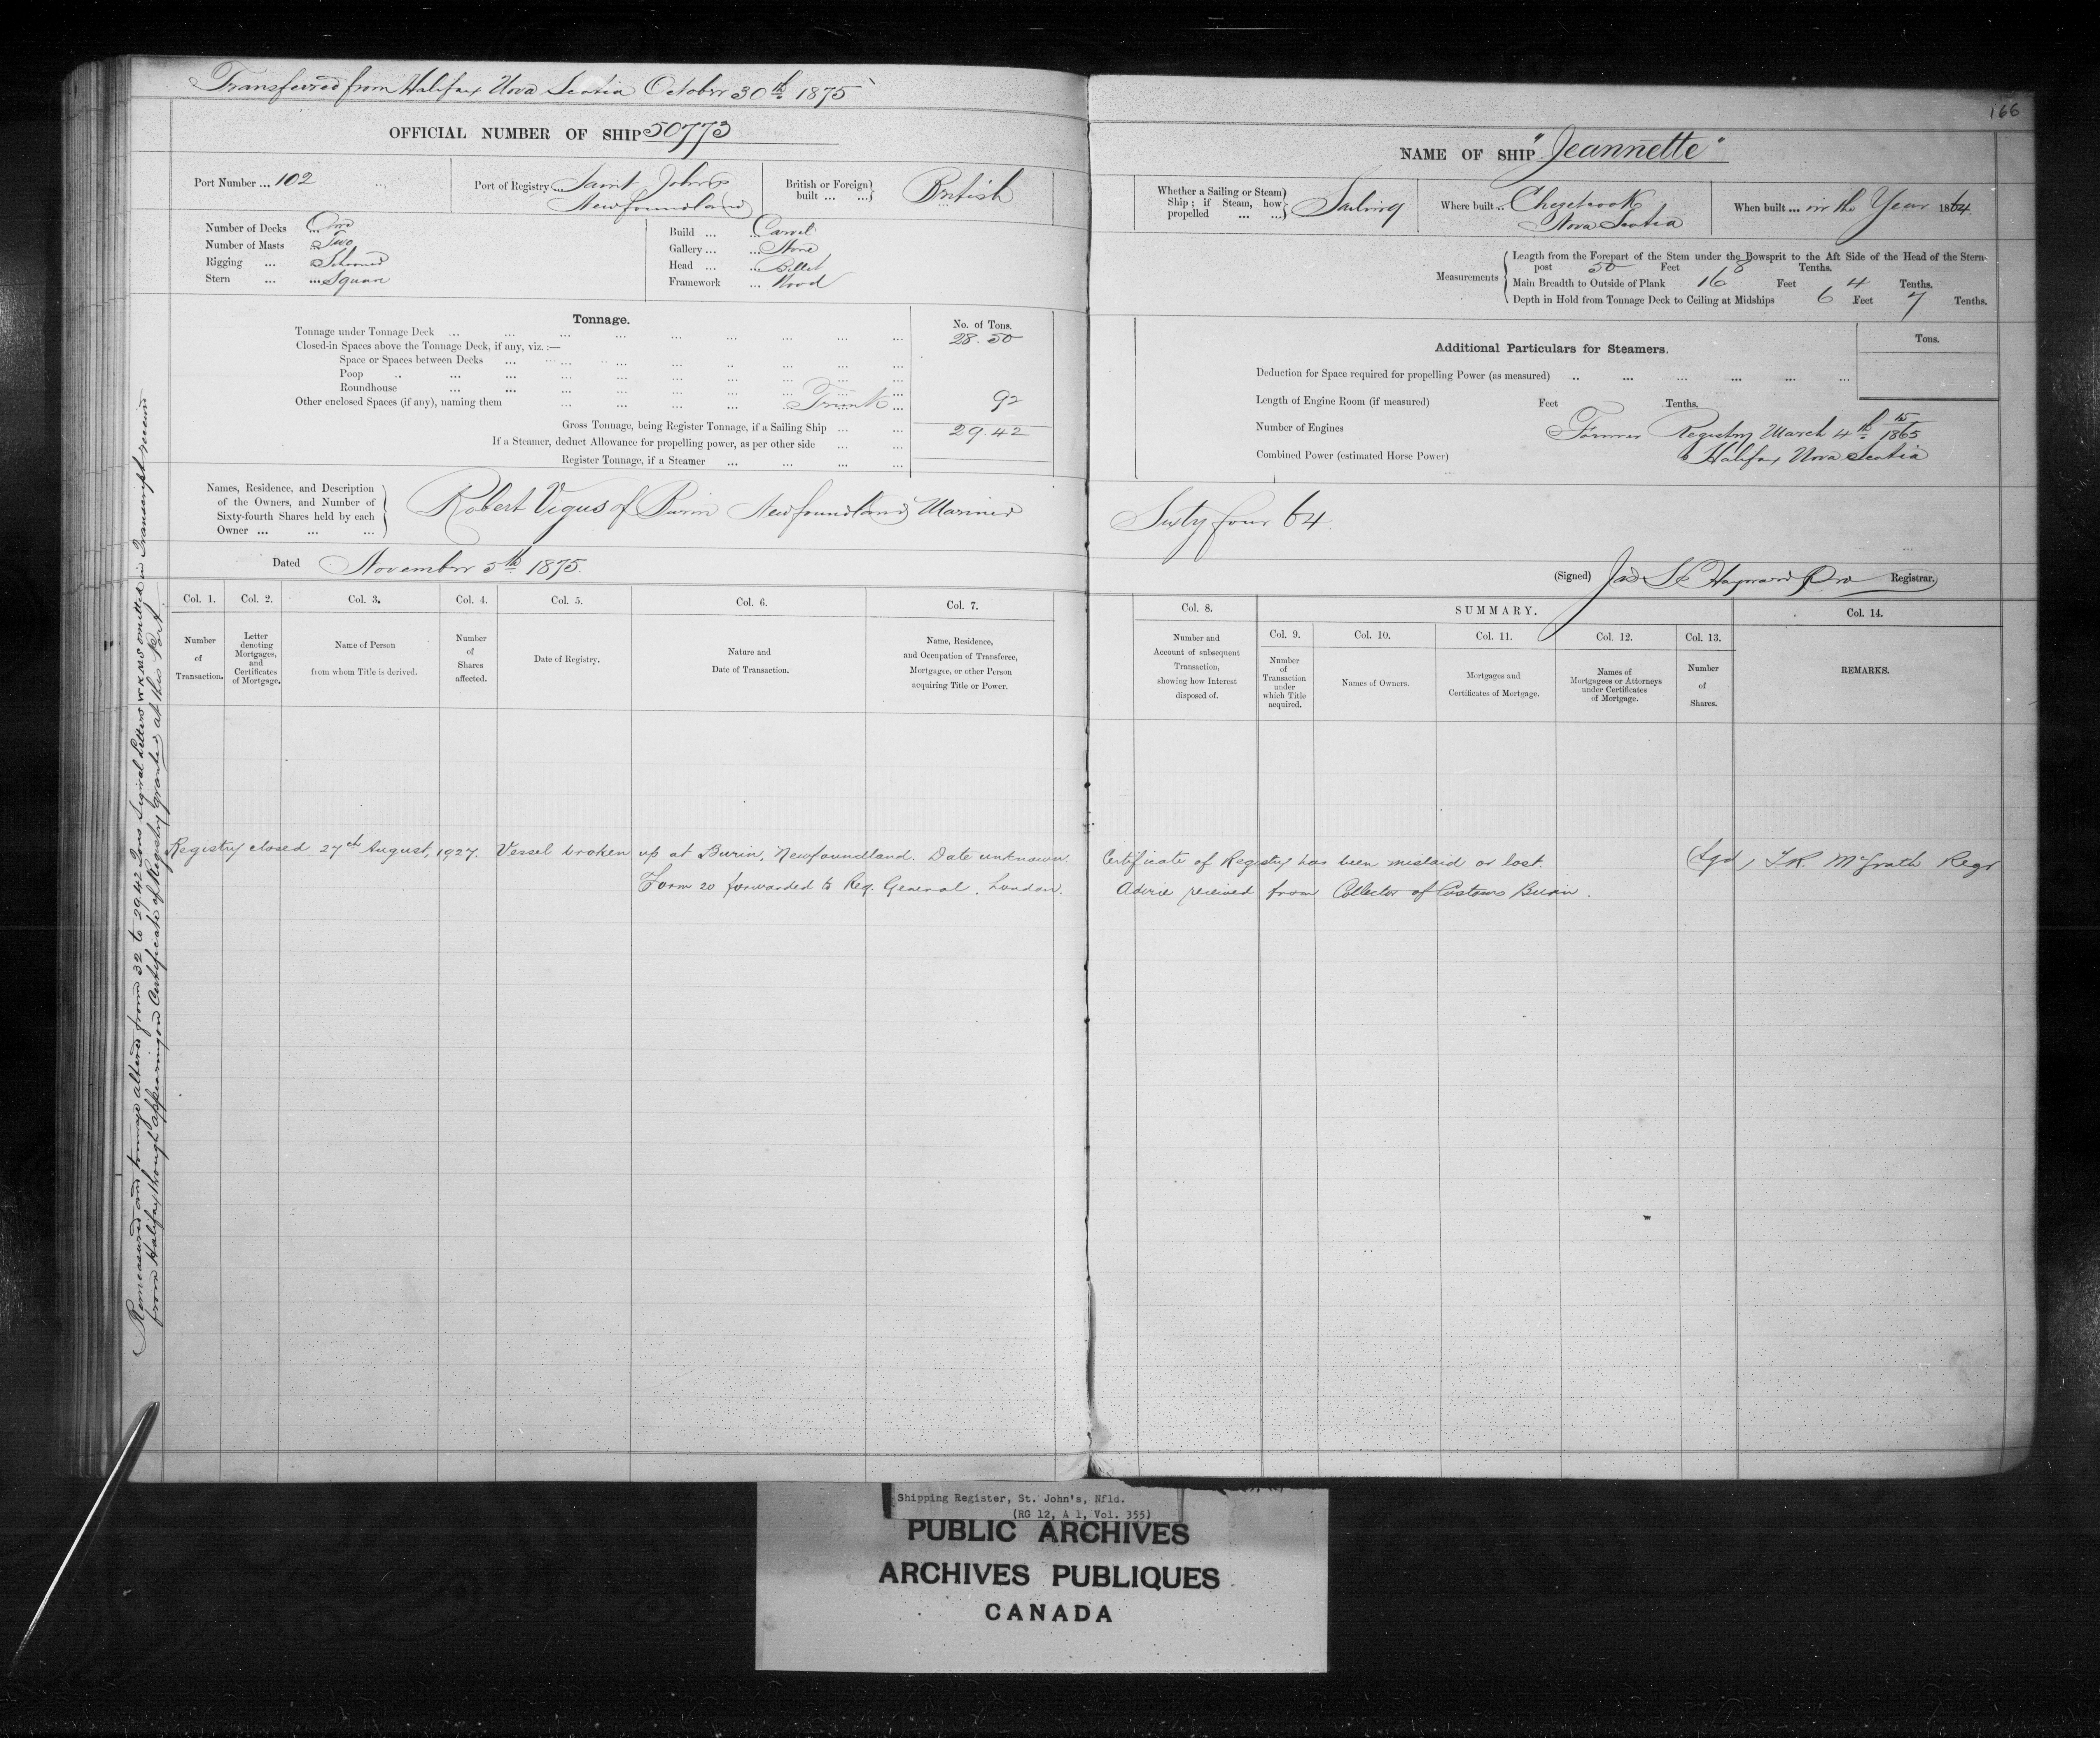 Transferred from Halifax Nova Scotia October 30th 1875
OFFICIAL NUMBER OF SHIP 50773
Port Number ... 102
Port of Registry ... Saint John's Newfoundland
British or Foreign built ... ... British
Number of Decks ... One
Number of Masts ... Two
Rigging ... ... Schooner
Stern ... ... Square
Build ... ... Carvel
Gallery ... ... None
Head ... ... Billet
Framework ... Wood
Tonnage.
No. of Tons.
Tonnage under Tonnage Deck ... 28.50
Closed-in Spaces above the Tonnage Deck, if any, viz. :—
Space or Spaces between Decks ...
Poop ...
Roundhouse ...
Other enclosed Spaces (if any), naming them ... Trunk ... 92
Gross Tonnage, being Register Tonnage, if a Sailing Ship ... ... 29.42
If a Steamer, deduct Allowance for propelling power, as per other side ... ...
Register Tonnage, if a Steamer ... ... ... ...
Names, Residence, and Description
of the Owners, and Number of
Sixty-fourth Shares held by each
Owner ... ... ...
Robert Vigus of Burin Newfoundland Mariner
Dated November 5th 1875.
Col. 1. Col. 2. Col. 3. Col. 4. Col. 5. Col. 6. Col. 7.
Number of Transaction.
Letter denoting Mortgages, and Certificates of Mortgage.
Name of Person from whom Title is derived.
Number of Shares affected.
Date of Registry.
Nature and Date of Transaction.
Name, Residence, and Occupation of Transferee, Mortgagee, or other Person acquiring Title or Power.
Registry closed 27th August, 1927. Vessel broken up at Burin, Newfoundland. Date unknown.
Form 20 forwarded to Reg. General, London.
Remeasured and tonnage altered from 32 to 29.42 Tons Signal Letters omitted in Transcript received
from Halifax though appearing on Certificate of Registry granted at this Port.
166
NAME OF SHIP "Jeannette"
Whether a Sailing or Steam Ship; if Steam, how propelled ... ... Sailing
Where built .. Chezetcook Nova Scotia
When built ... in the Year 1864.
Measurements
Length from the Forepart of the Stem under the Bowsprit to the Aft Side of the Head of the Stern-
post 50 Feet 8 Tenths.
Main Breadth to Outside of Plank 16 Feet 4 Tenths.
Depth in Hold from Tonnage Deck to Ceiling at Midships 6 Feet 7 Tenths.
Additional Particulars for Steamers.
Tons.
Deduction for Space required for propelling Power (as measured) .. ... ... ... ... ...
Length of Engine Room (if measured) Feet Tenths.
Number of Engines
Combined Power (estimated Horse Power)
Former Registry March 4th 15/1865
Halifax Nova Scotia
Sixty four 64.
(Signed) Registrar.
Col. 8. SUMMARY. Col. 14.
Col. 9. Col. 10. Col. 11. Col. 12. Col. 13.
Number and Account of subsequent Transaction, showing how Interest disposed of.
Number of Transaction under which Title acquired.
Names of Owners.
Mortgages and Certificates of Mortgage.
Names of Mortgagees or Attorneys under Certificates of Mortgage.
Number of Shares.
REMARKS.
Certificate of Registry has been mislaid or lost. (Sgd) McGrath Regr
Advice received from Collector of Customs Burin.
Shipping Register, St. John's, Nfld.
(RG 12, A 1, Vol. 355)
PUBLIC ARCHIVES
ARCHIVES PUBLIQUES
CANADA